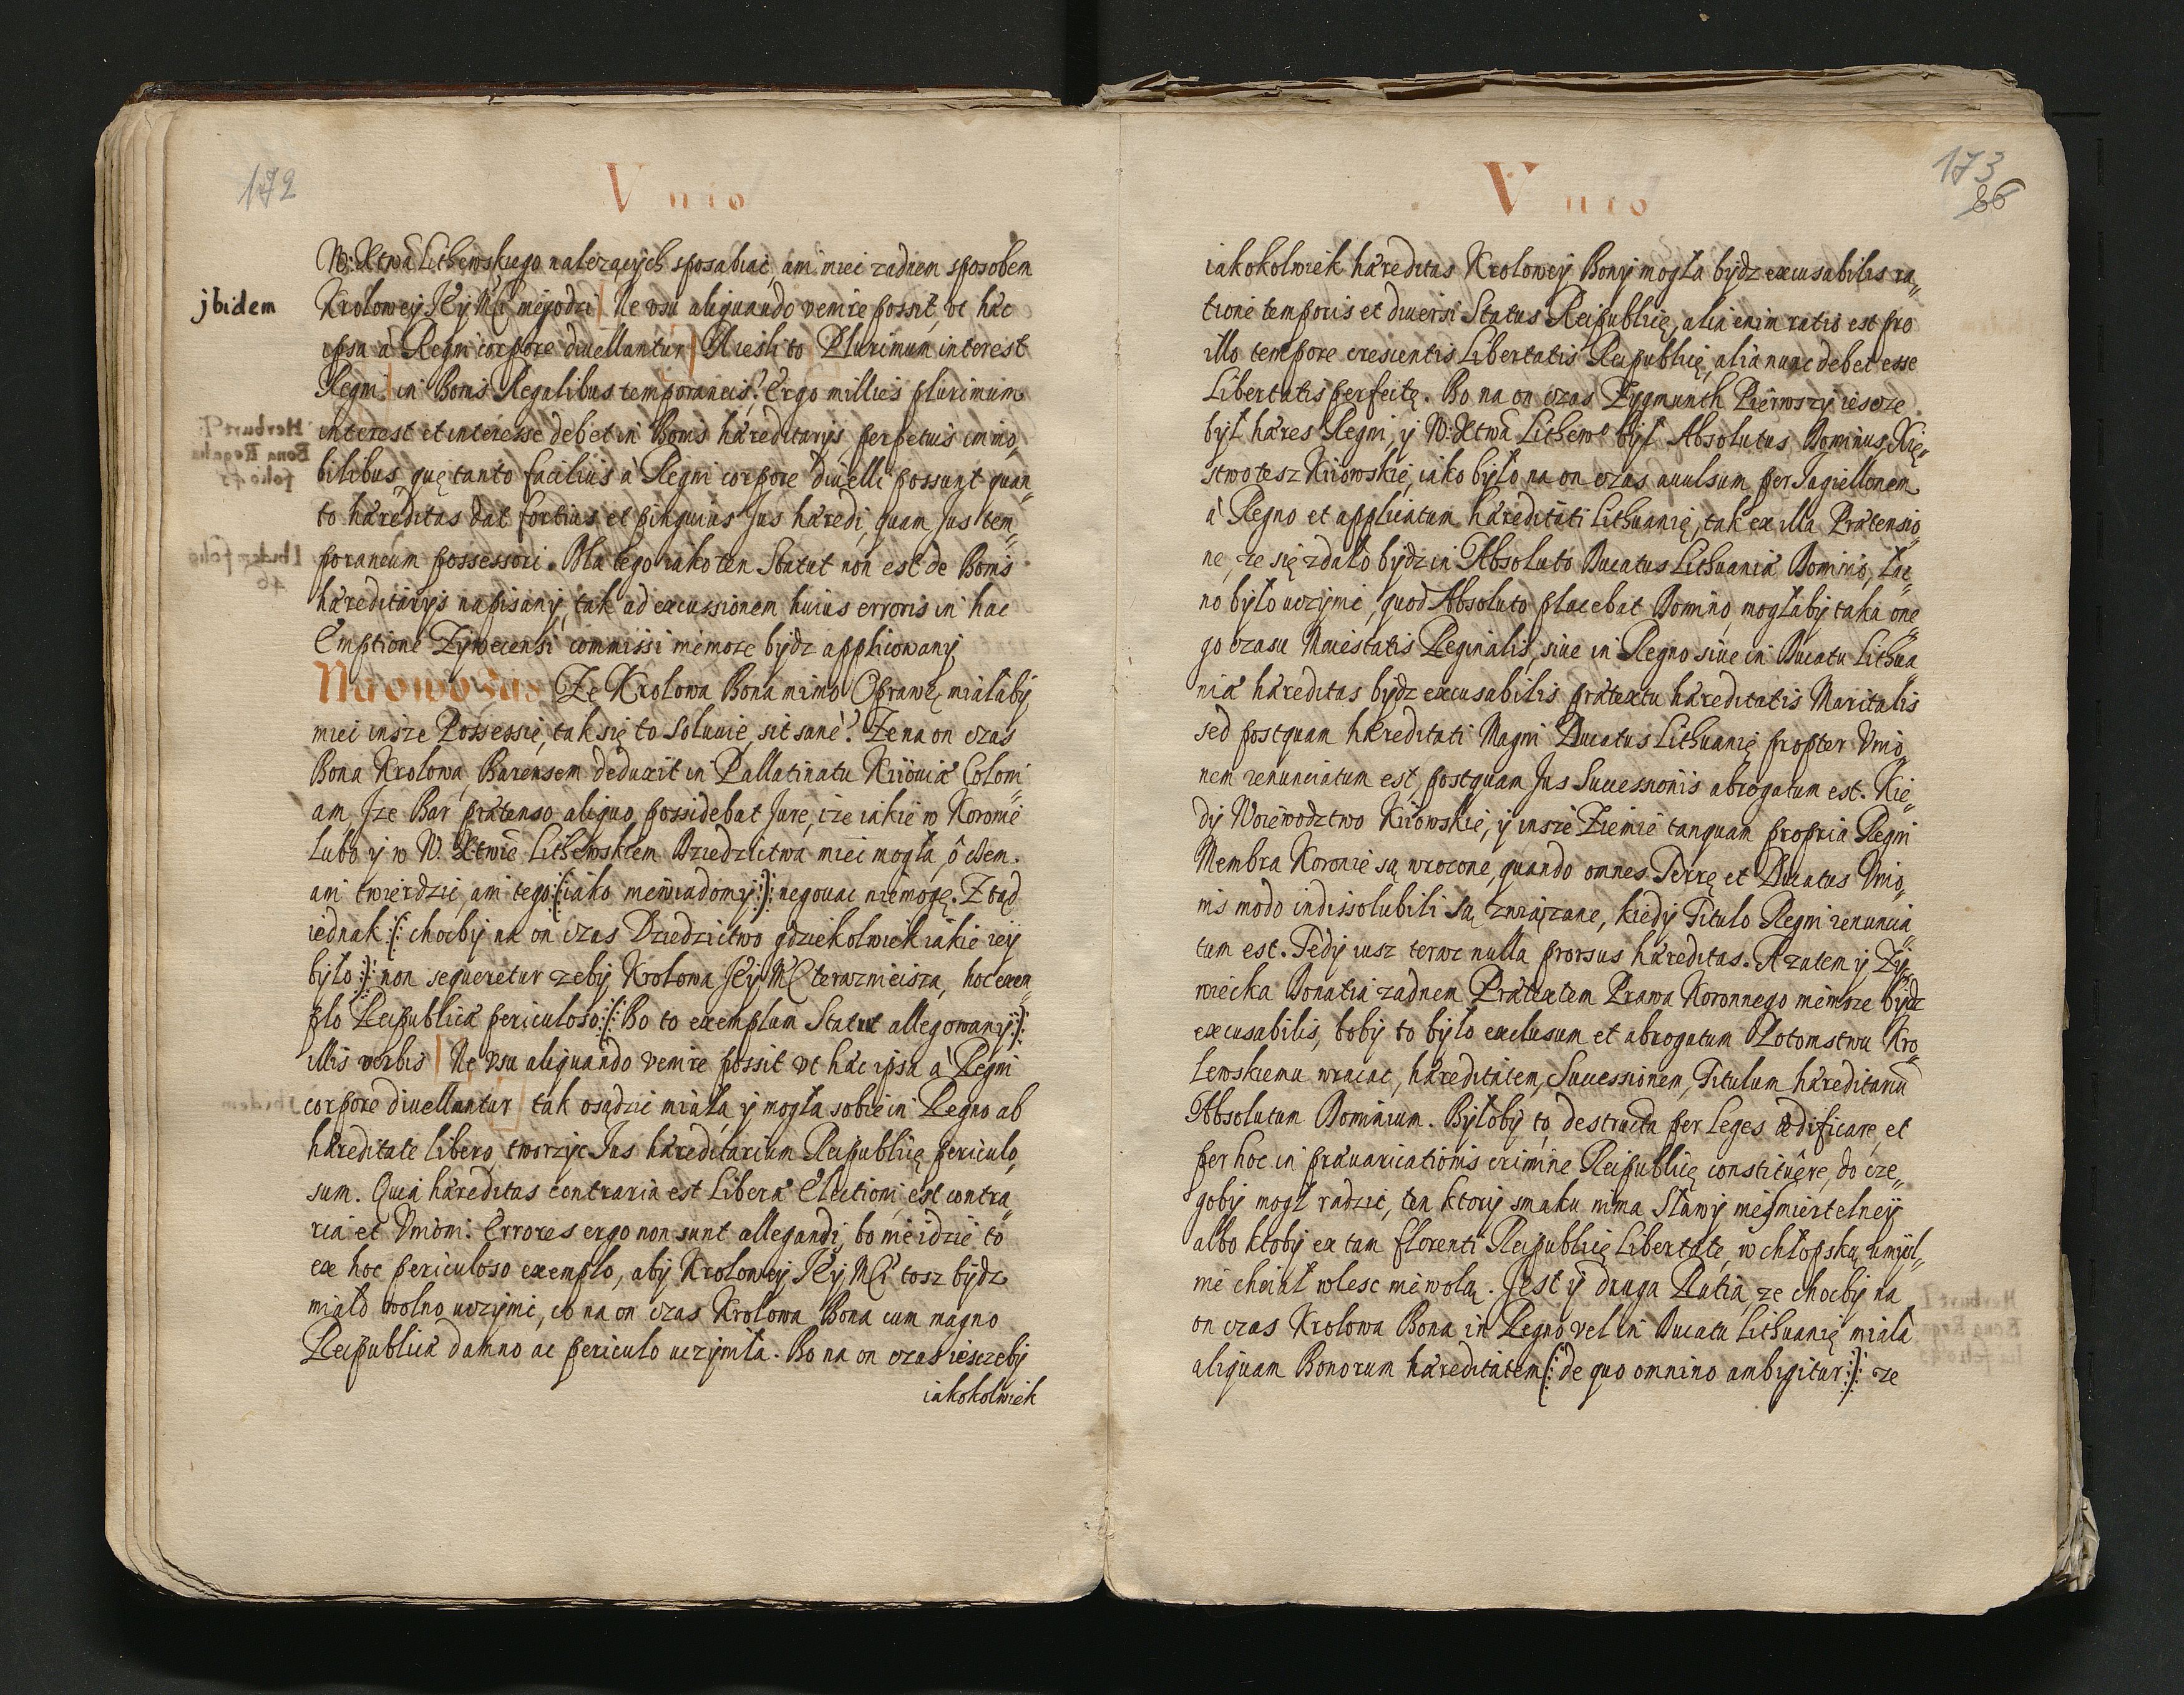 172
Vnio
W: Xtwa Lithewskiego nalezących sposabiac, ani miec zadnem sposobem
jbidem
Krolowey Jey Mci niegodzi Ne vsu aliquando venire possit, vt hæc
ipsa à Regni corpore diuellantur A iesli to Plurimum interest
Regni in Bonis Regalibus temporaneis? Ergo millies plurimum
interest et interesse debet in Bonis hæreditarijs perpetuis immo„
bilibus, quę tanto facilius à Regni corpore diuelli possunt quan„
to hæreditas dat fortius et pinguius Jus hæredi, quam Jus tem„
poraneum possessori. Dla tego iako ten Statut non est de Bonis
hæreditarijs napisany, tak ad excussionem huius erroris in hac
Emptione Zywecensi commissi niemoze bydz applicowany
Na owo zas Ze Krolowa Bona mimo Oprawę, miałaby
miec insze Possessie, tak się to soluuie, sit sane? Ze na on czas
Bona Krolowa, Barensem deduxit in Pallatinatu Kiiouiæ Coloni„
am, Jze Bar prætenso aliquo possidebat Jure, ize iakie w Koronie
lubo y w W. Xtwie Lithewskiem Dziedzictwa miec mogła, ô czem
ani twierdzic, ani tego (: iako niewiadomy :) negouac niemogę. Ztąd
iednak (: chocby na on czas Dziedzictwo gdziekolwiek iakie iey
było :) non sequeretur zeby Krolowa Jey Mc teraznieisza, hoc exem„
plo Reipublicæ periculoso (: Bo to exemplum Statut allegowany :)
illis verbis Ne vsu aliquando venire possit vt hæc ipsa à Regni
corpore diuellantur tak osądzic miała, y mogła sobie in Regno ab
hæreditate libero, tworzyc Jus hæreditarium Reipublicę periculo„
sum. Quia hæreditas contraria est Liberæ Electioni, est contra„
ria et Vnioni. Errores ergo non sunt allegandi, bo nie idzie to
ex hoc periculoso exemplo, aby Krolowey Jey Mci tosz bydz
miało wolno vczynic, co na on czas Krolowa Bona cum magno
Reipublicæ damno ac periculo vczyniła. Bo na on czas ieszczeby
iakokolwiek
173
86
Vnio
iakokolwiek hæreditas Krolowey Bony mogła bydz excusabilis ra„
tione temporis et diuersi Status Reipublicę, alia enim ratio est pro
illo tempore crescentis Libertatis Reipublicę, alia nunc debet esse
Libertatis perfectę. Bo na on czas Zygmunth Pierwszy iescze
był hæres Regni, y W. Xtwa Lithewᵒ był Absolutus Dominus, Xię„
stwo tesz Kiiowskie, iako było na on czas auulsum per Jagiellonem
à Regno et applicatum hæreditati Lithuanię, tak ex illa Prætensio„
ne, ze się zdało bydz in Absoluto Ducatus Lithuaniæ Dominio, łac„
no było vczynic, quod Absoluto placebat Domino, mogłaby taka one„
go czasu Maiestatis Reginalis, siue in Regno siue in Ducatu Lithua„
niæ hæreditas bydz excusabilis prætextu hæreditatis Maritalis
sed postquam hæreditati Magni Ducatus Lithuanię propter Vnio„
nem renunciatum est, postquam Jus Successionis abrogatum est. Kie„
dy Woiewodztwo Kiiowskie, y insze Ziemie tanquam propria Regni
Membra Koronie są wrocone, quando omnes Terrę et Ducatus Vnio„
nis modo indissolubili są związane, kiedy Titulo Regni renuncia„
tum est. Tedy iusz teraz nulla prorsus hæreditas. A zatem y Zy„
wiecka Donatia zadnem Prætextem Prawa Koronnego niemoze bydz
excusabilis, boby to było exclusum et abrogatum Potomstwu Kro„
lewskiemu wracac, hæreditatem, Successionem, Titulum hæreditariū
Absolutum Dominium. Byłoby to, destructa per Leges ædificare, et
per hoc in præuaricationis crimine Reipublicę constituere, do cze„
goby mogł radzic, ten ktory smaku nima Sławy niesmiertelney
albo ktoby ex tam florenti Reipublicę Libertate, w chłopską umysl„
nie chciał wlesc niewolą. Jest y druga Ratia, ze chocby na
on czas Krolowa Bona in Regno vel in Ducatu Lithuanię miała
aliquam Bonorum hæreditatem (: de quo omnino ambigitur :) ze